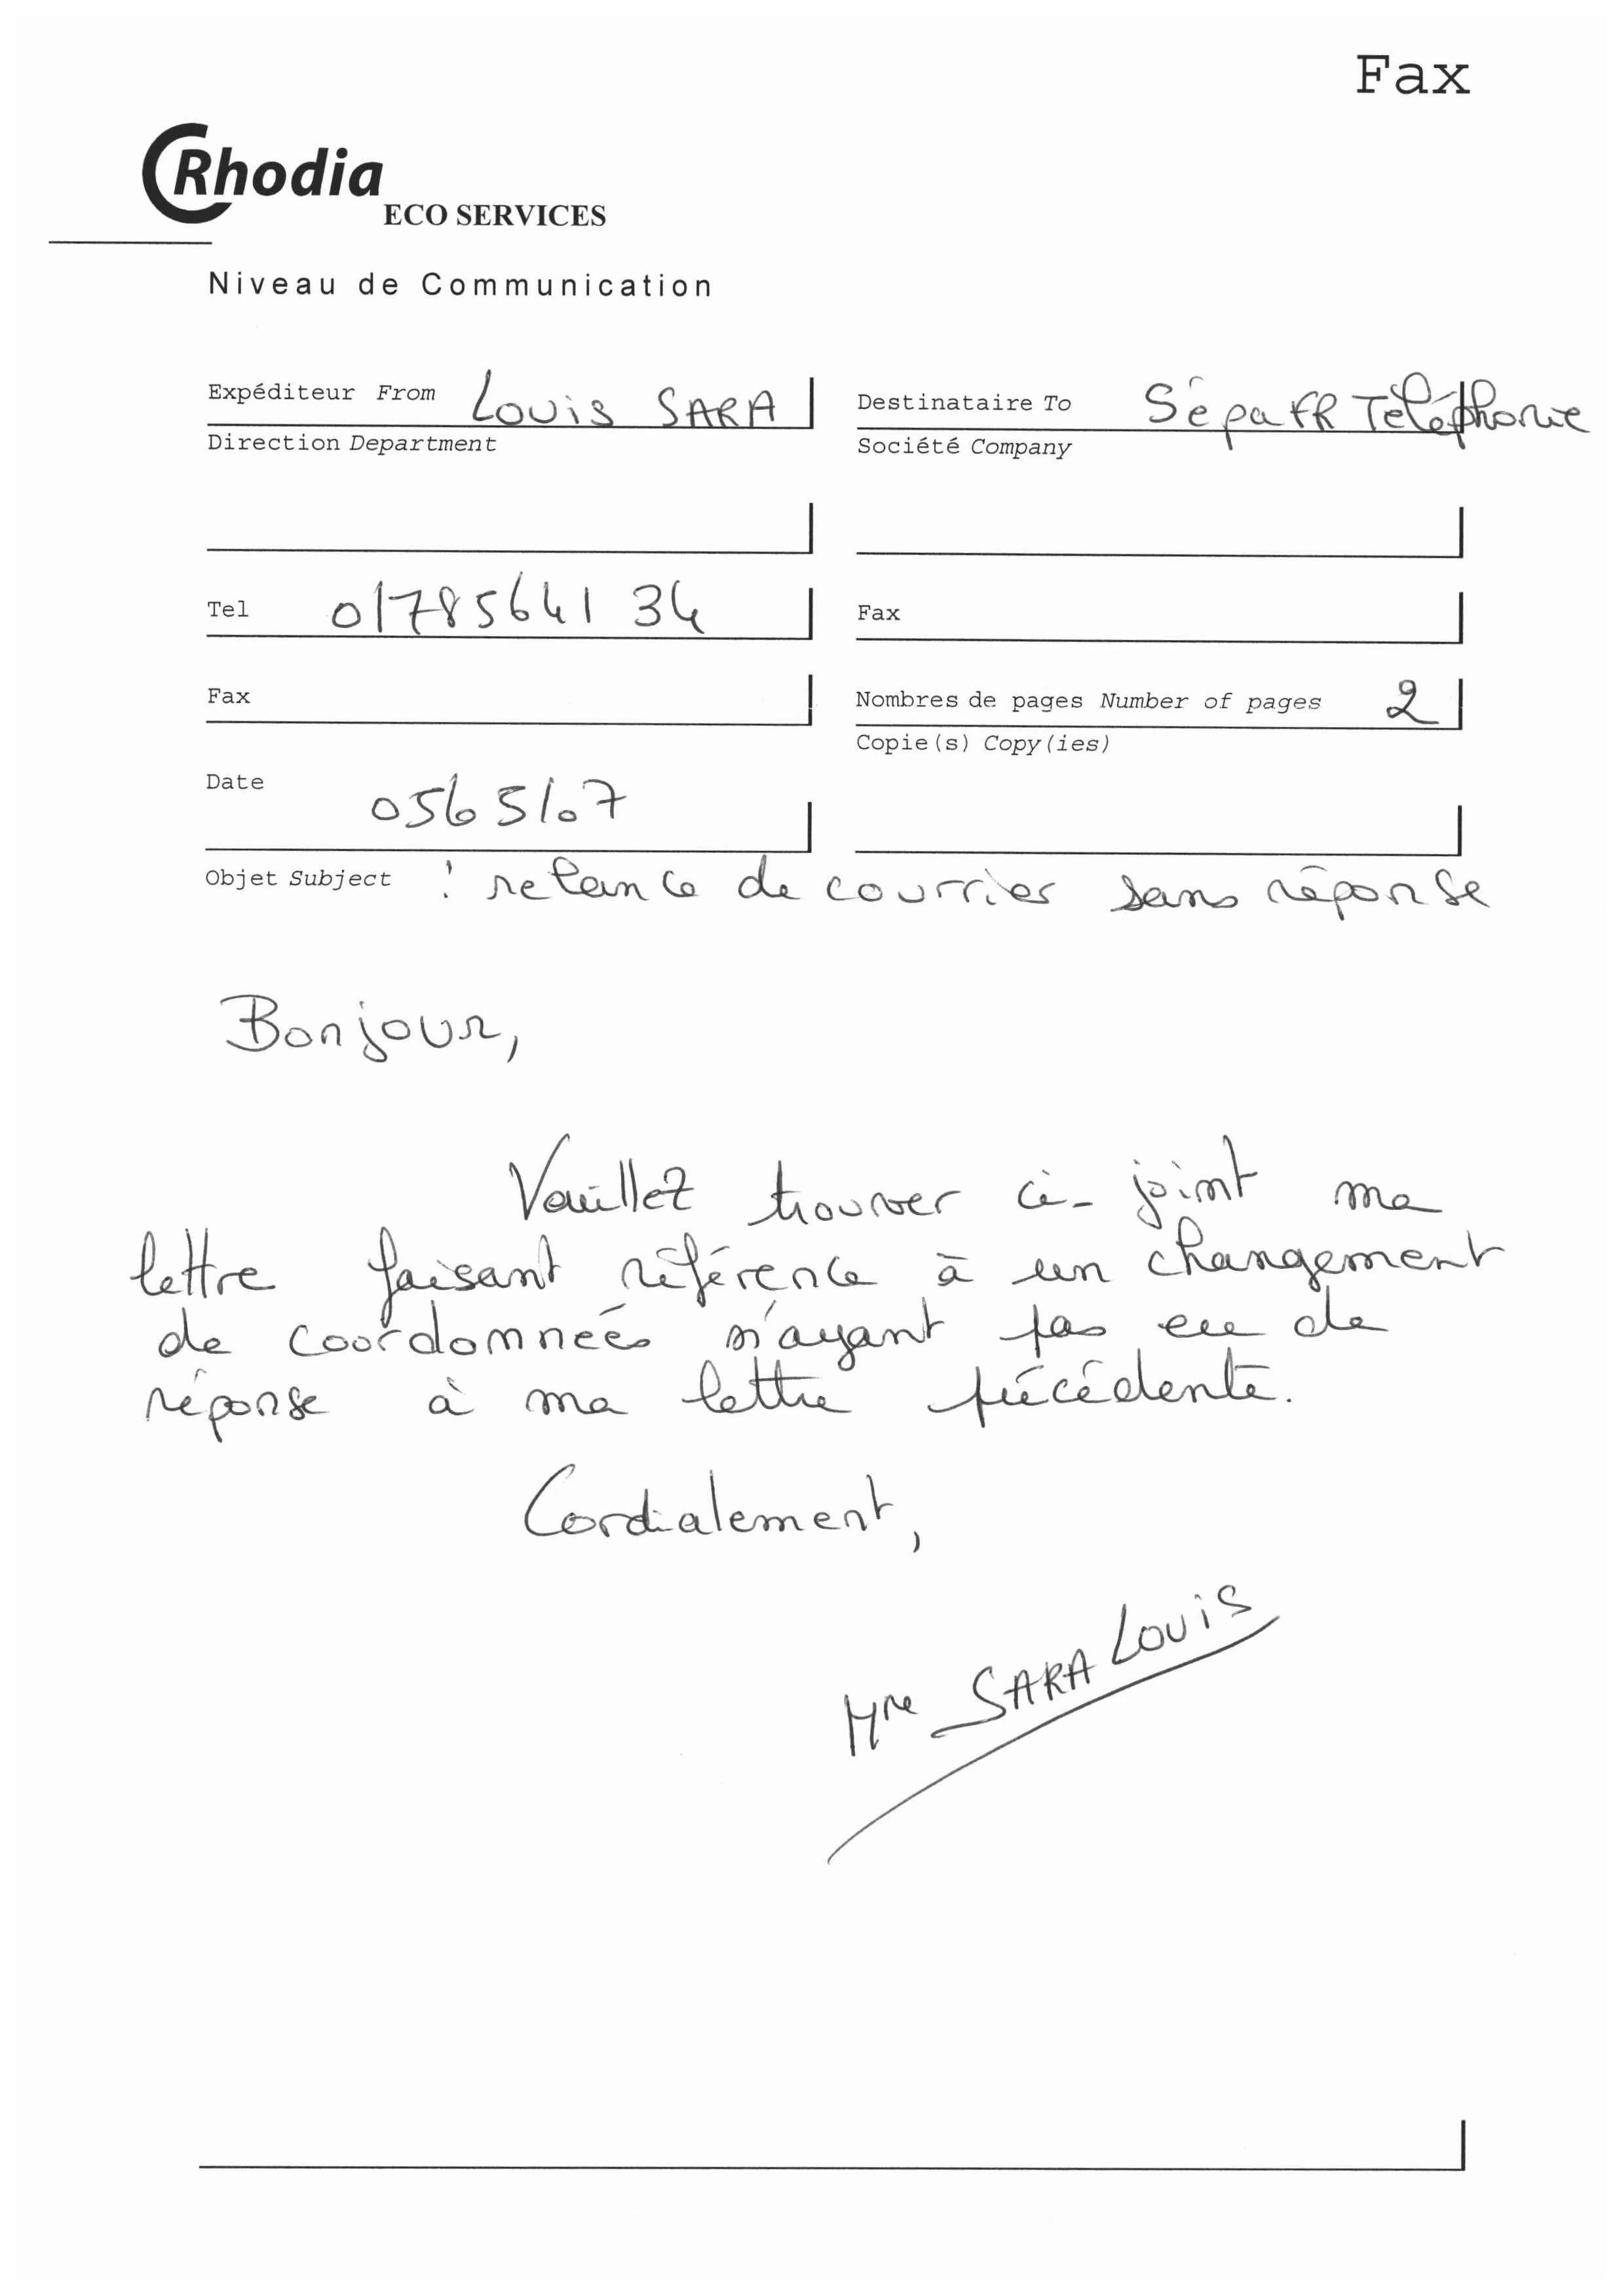 Fax
Rhodia
ECO SERVICES
Niveau de Communication
Expéditeur From Louis SARA
Direction Department
Destinataire To SépaFR Téléphonie
Société Company
Tel 0178564134
Fax
Fax
Nombres de pages Number of pages 2
Copie(s) Copy(ies)
Date
Objet Subject : relance de courrier sans réponse
Bonjour,
Veuillez trouver ci-joint ma
lettre faisant référence à un changement
de coordonnées n'ayant pas eu de
réponse à ma lettre précédente.
Cordialement,
Mme SARA LOUIS